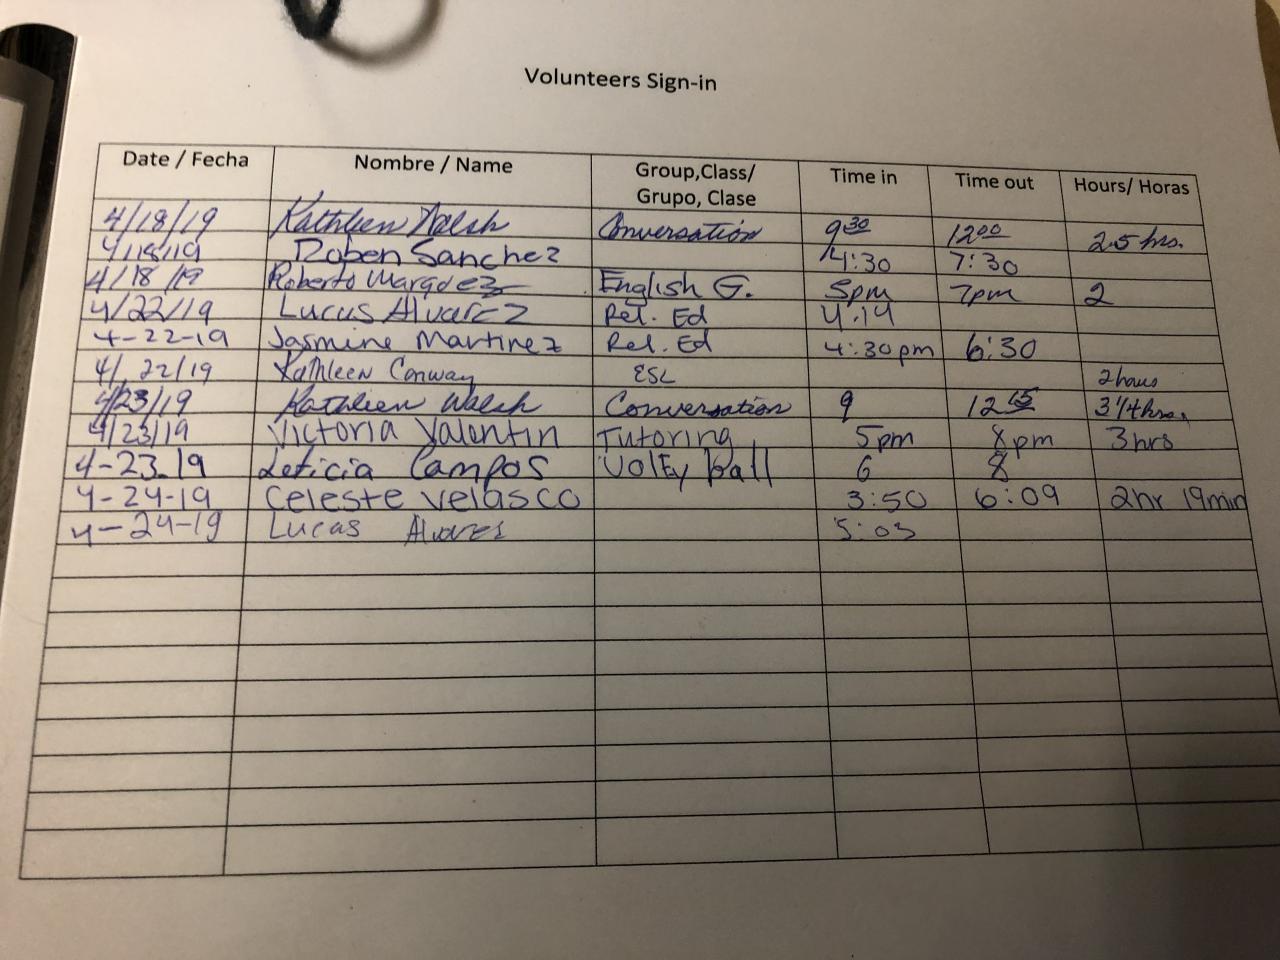 Volunteers Sign-in
Date / Fecha Nombre / Name Group,Class/ Grupo, Clase Time in Time out Hours/ Horas
4/18/19 Kathleen Walsh Conversation 9:30 12:00 2.5 hrs.
4/18/19 Roben Sanchez 4:30 7:30
4/18/19 Roberto Marquez English G. 5pm 7pm 2
4/22/19 Lucus Alvarez Rel. Ed 4:19
4-22-19 Jasmine Martinez Rel. Ed 4:30pm 6:30
4/22/19 Kathleen Conway ESL 2 hours
4/23/19 Kathleen Walsh Conversation 9 12 15 3 1/4 hrs.
4/23/19 Victoria Valentin Tutoring 5pm 8pm 3hrs
4-23-19 Leticia Campos Volly ball 6 8
4-24-19 Celeste Velasco 3:50 6:09 2hr 19min
4-24-19 Lucas Alvarez 5:03